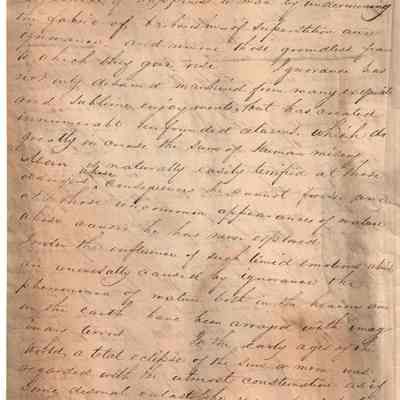 of happiness to man by undermining
the fabric of superstition and
ignorance and remove those groundless fears
to which they give rise Ignorance has
not only debarred mankind from many exquisite
and sublime enjoyments, but has created
innumerable unfounded alarms which do
greatly increase the sum of human misery
Man is naturally easily terrified at those
dangers whose consequences he cannot foresee and
at those uncommon appearances of nature
whose causes he has never explored
Under the influence of such timid emotions which
are universally caused by ignorance the
phenomena of nature both in the heavens and
on the earth have been arrayed with imag-
inary terrors In the early ages of the
World, a total eclipse of the sun or moon was
regarded with the utmost consternation as if
some dismal catastrophe